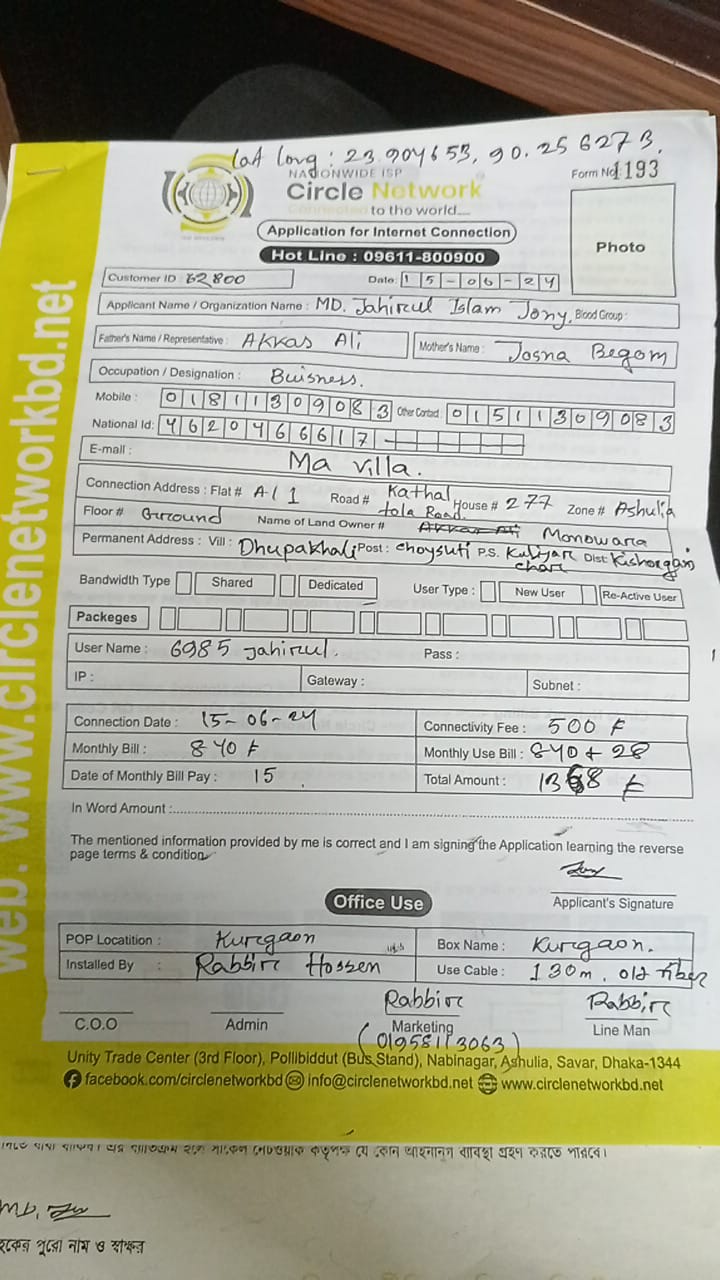 Lat long : 23.904653, 90.256273.
NATIONWIDE ISP
Form No 1193
Circle Network
Connected to the world....
Application for Internet Connection
Photo
Hot Line : 09611-800900
Customer ID 62800 Date: 15-06-24
Applicant Name / Organization Name : MD. Jahirul Islam Jony. Blood Group :
Father's Name / Representative : Akkas Ali Mother's Name : Josna Begom
Occupation / Designation : Buisness.
Mobile : 01811309083 Other Contact : 01511309083
National Id: 4620466617
E-mail :
Ma villa.
Connection Address : Flat # A/1 Road # Kathal tola Road. House # 277 Zone # Ashulia
Floor # Grround Name of Land Owner # Akkas Ali Monowara
Permanent Address : Vill : Dhupakhali Post : Choysuti P.S. Kuliyar char Dist: Kishorganj
Bandwidth Type Shared Dedicated User Type : New User Re-Active User
Packeges
User Name : 6985 jahirul. Pass :
IP : Gateway : Subnet :
Connection Date : 15-06-24 Connectivity Fee : 500 ৳
Monthly Bill : 840 ৳ Monthly Use Bill : 840 + 28
Date of Monthly Bill Pay : 15 Total Amount : 1368 ৳
In Word Amount :
The mentioned information provided by me is correct and I am signing the Application learning the reverse
page terms & condition
Jony
Applicant's Signature
Office Use
POP Locatition : Kurgaon Box Name : Kurgaon.
Installed By : Rabbir Hossen Use Cable : 130m. old fiber
Rabbir Rabbir
C.O.O Admin Marketing Line Man
(01958113063)
Unity Trade Center (3rd Floor), Pollibiddut (Bus Stand), Nabinagar, Ashulia, Savar, Dhaka-1344
facebook.com/circlenetworkbd info@circlenetworkbd.net www.circlenetworkbd.net
web: www.circlenetworkbd.net
কর্তৃপক্ষ যে কোন আইনানুগ ব্যবস্থা গ্রহণ করতে পারবে।
MD. Jony
হকের পুরো নাম ও স্বাক্ষর